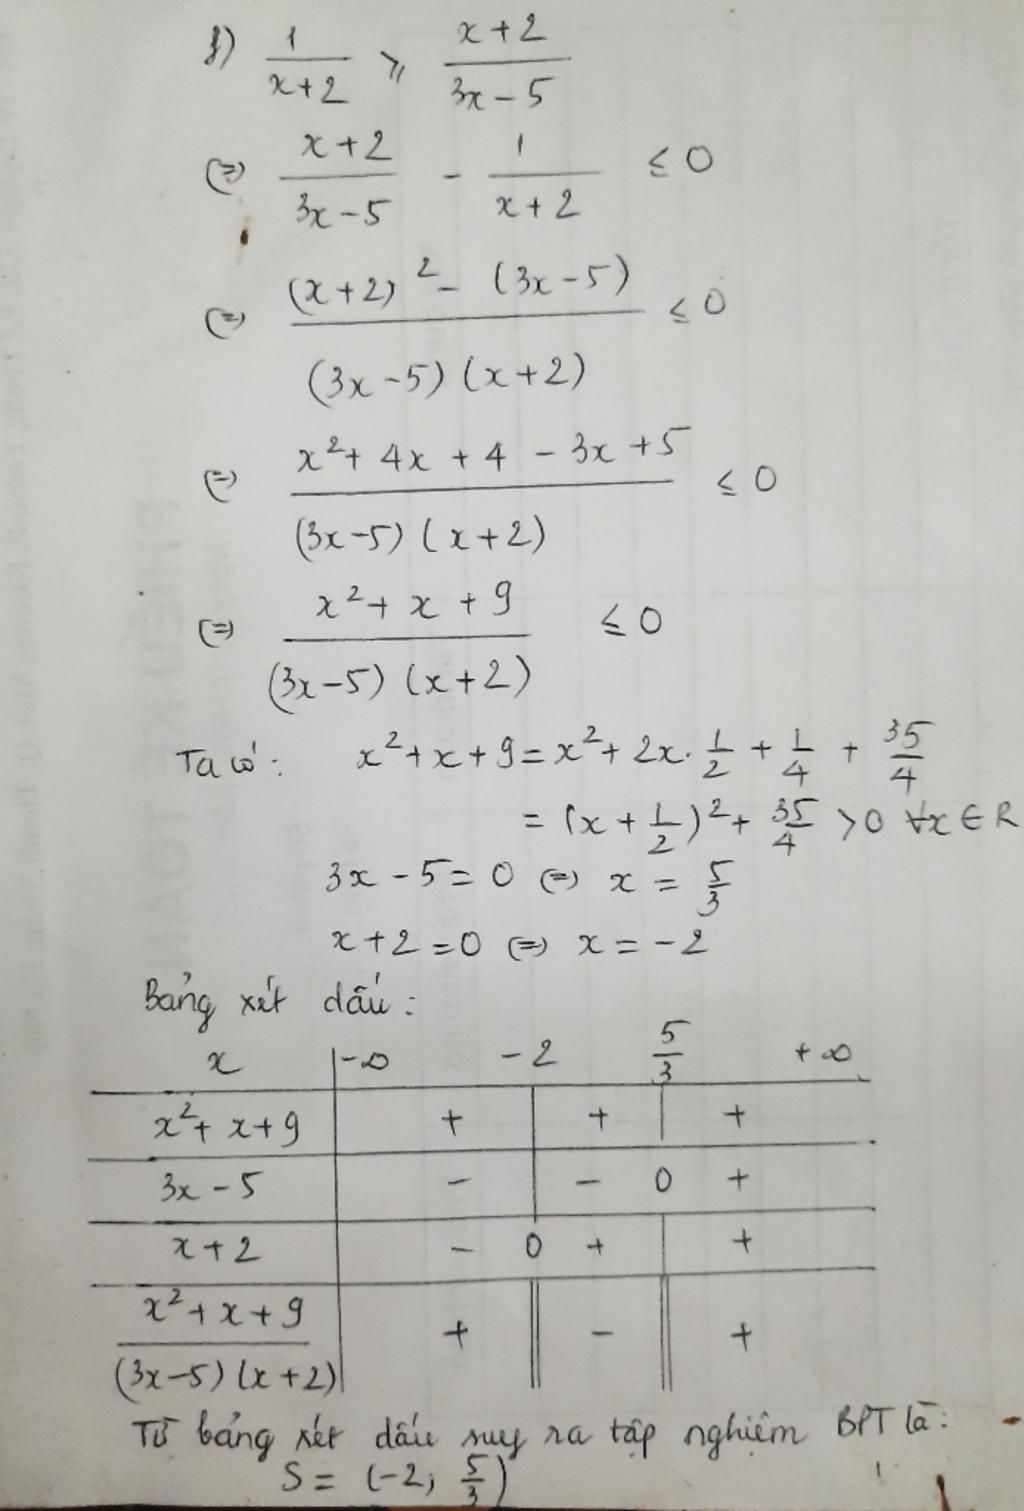 f) 1/(x+2) ⩾ (x+2)/(3x-5)
(=) (x+2)/(3x-5) - 1/(x+2) ≤ 0
(=) ((x+2)² - (3x-5))/((3x-5)(x+2)) ≤ 0
(=) (x² + 4x + 4 - 3x + 5)/((3x-5)(x+2)) ≤ 0
(=) (x² + x + 9)/((3x-5)(x+2)) ≤ 0
Ta có: x² + x + 9 = x² + 2x . 1/2 + 1/4 + 35/4
= (x + 1/2)² + 35/4 > 0 ∀x ∈ R
3x - 5 = 0 (=) x = 5/3
x + 2 = 0 (=) x = -2
Bảng xét dấu:
x | -∞ -2 5/3 +∞
x² + x + 9 | + | + | +
3x - 5 | - | - 0 +
x + 2 | - 0 + | +
(x² + x + 9)/((3x-5)(x+2)) | + || - || +
Từ bảng xét dấu suy ra tập nghiệm BPT là:
S = (-2; 5/3)